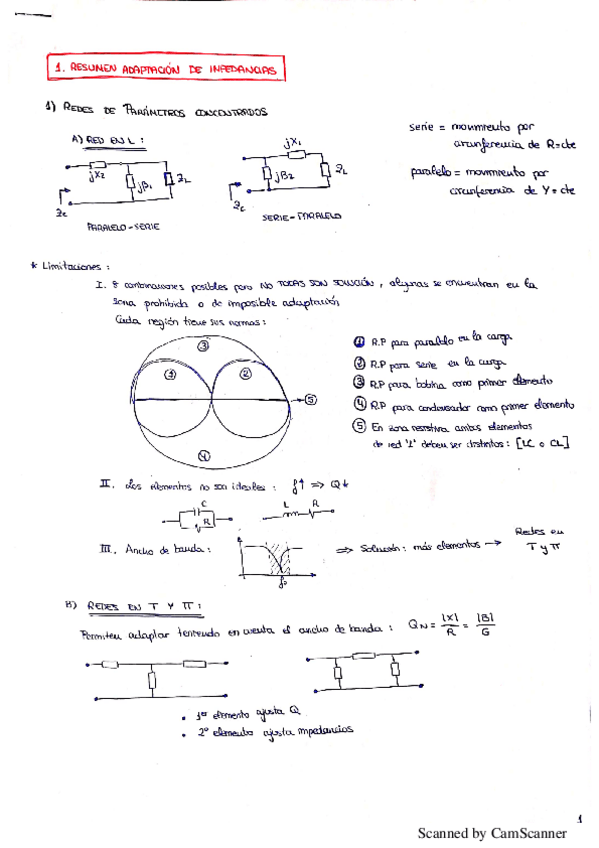 1. RESUMEN ADAPTACIÓN DE IMPEDANCIAS
1) REDES DE PARÁMETROS CONCENTRADOS
A) RED EN L :
jX2
jB1
ZL
Zc
PARALELO-SERIE
jX1
jB2
ZL
Zc
SERIE-PARALELO
serie = movimiento por
circunferencia de R=cte
paralelo = movimiento por
circunferencia de Y=cte
* Limitaciones :
I. 8 combinaciones posibles pero NO TODAS SON SOLUCIÓN, algunas se encuentran en la
zona prohibida o de imposible adaptación
Cada región tiene sus normas :
3
1
2
5
4
1 R.P para paralelo en la carga
2 R.P para serie en la carga
3 R.P para bobina como primer elemento
4 R.P para condensador como primer elemento
5 En zona resistiva ambos elementos
de red "L" deben ser distintos : [LC o CL]
II. Los elementos no son ideales : f↑ ⇒ Q↓
C
R
L R
III. Ancho de banda :
f0
⇒ Solución : más elementos → Redes en
T y π
B) REDES EN T Y π :
Permiten adaptar teniendo en cuenta el ancho de banda : QN = |X|/R = |B|/G
• 1er elemento ajusta Q
• 2º elemento ajusta impedancias
1
Scanned by CamScanner